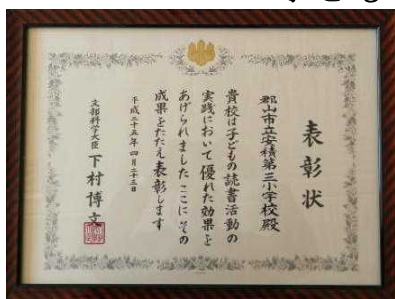 表彰状
郡山市立安積第三小学校殿
貴校は子どもの読書活動の
実践において優れた効果を
あげられました ここにその
成果をたたえ表彰します
平成二十五年四月二十三日
文部科学大臣 下村博文